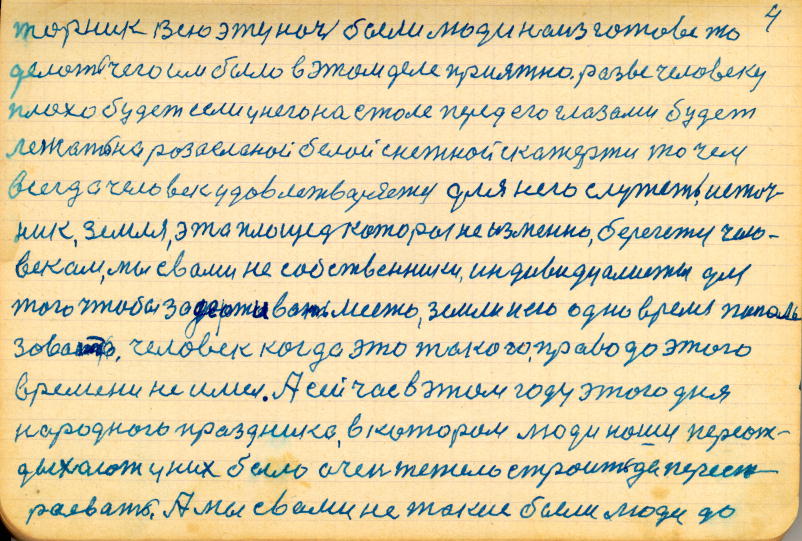 4
торник всю эту ноч были люди наизготове то
делоть чего им было в этом деле приятно. разве человеку
плохо будет если у него на столе перед его глазами будет
лежать на розасланой белой снежной скатерти то чем
всегда человек удовлетваряется для него служеть, источ-
ник, земля, эта площед которы не изменно, берегету чело-
векам, мы свами не собственники, индивидуалисты для
того чтобы задерживать место, земли него одно время пополь
зовать. человек когда это такого, право до этого
времени не имел. А сейчас в этом году этого дня
народного празднико, в котором люди ноши переож-
дыхают у них было очен тежело строить да перест-
раевать. А мы свами не такие были люди до